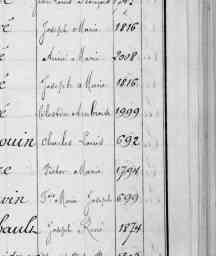 é Joseph Marie 1816
é Aimé Marie 2008
é Joseph Marie 1816
é Célestin Ambroise 1999
ouin Charles Louis 692
Victor Marie 1794
vin Marie Joseph 699
bault Joseph René 1874